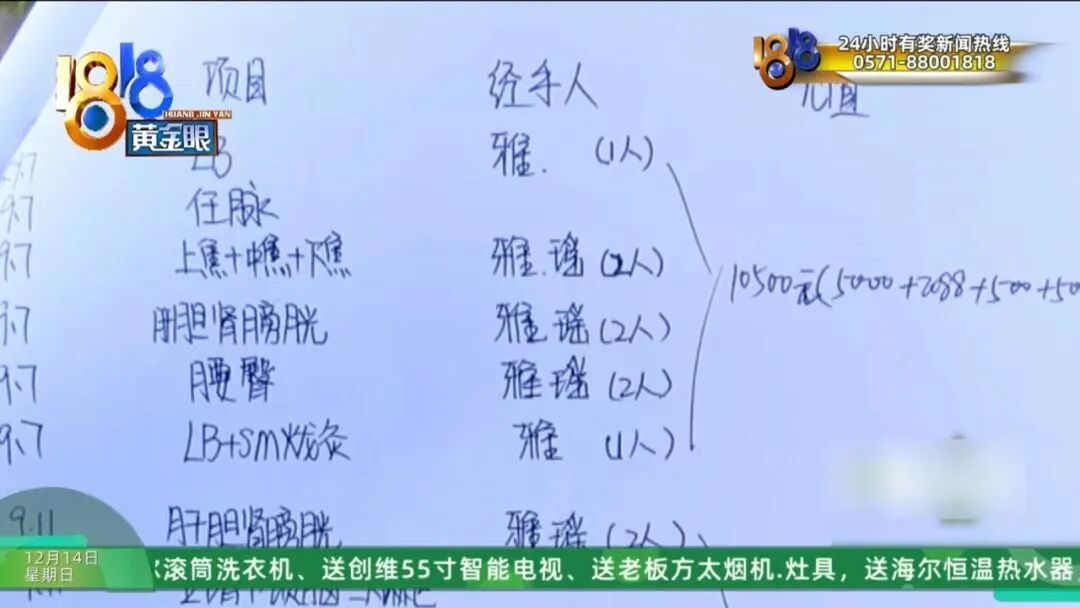 1818
HUANG JIN YAN
黄金眼
24小时有奖新闻热线
0571-88001818
项目 经手人
LB 雅. (1人)
9.7 任脉
9.7 上焦+中焦+下焦 雅.瑶(2人)
10500元(5000+2088+500+50
9.7 肝胆肾膀胱 雅瑶(2人)
9.7 腰臀 雅瑶(2人)
9.7 LB+SM拨灸 雅 (1人)
9.11 肝胆肾膀胱 雅瑶(2人)
12月14日
星期日
滚筒洗衣机、送创维55寸智能电视、送老板方太烟机.灶具，送海尔恒温热水器